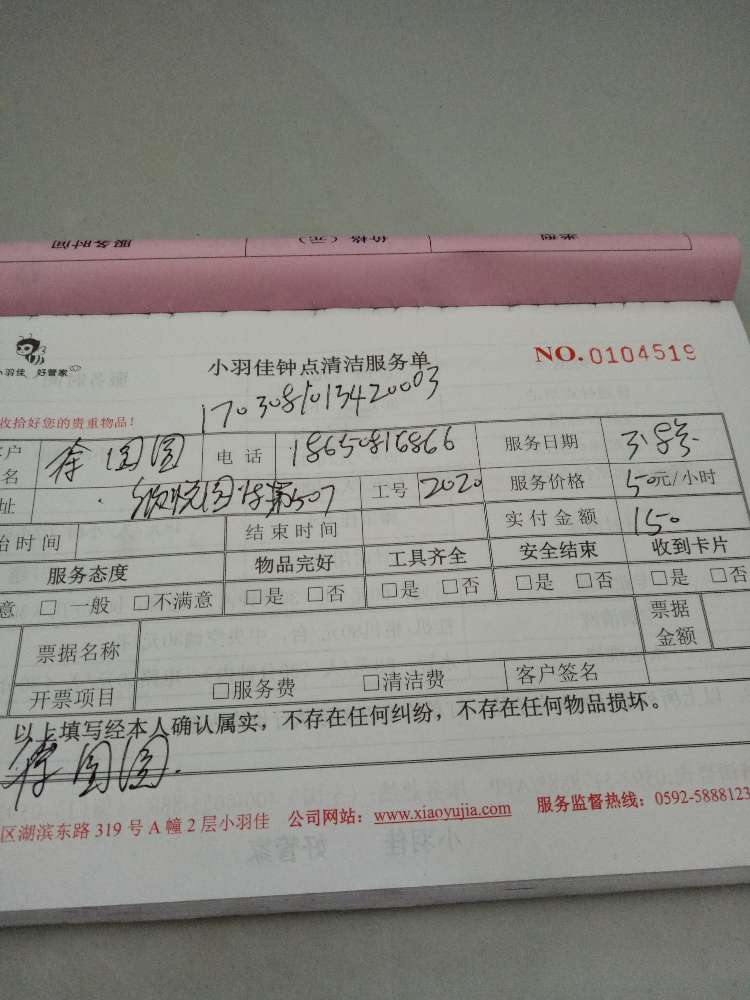 服务时间 价格（元） 类型
小羽佳 好管家
小羽佳钟点清洁服务单 NO.0104519
收拾好您的贵重物品！
1703081013420003
户名 圆圆 电话 18650816866 服务日期
址 507 工号 2020 服务价格 50元/小时
始时间 结束时间 实付金额 150
服务态度 物品完好 工具齐全 安全结束 收到卡片
意 □ 一般 □不满意 □是 □否 □是 □否 □是 □否 □是 □否
票据名称 票据金额
开票项目 □服务费 □清洁费 客户签名
以上填写经本人确认属实，不存在任何纠纷，不存在任何物品损坏。
圆圆
区湖滨东路319号A幢2层小羽佳 公司网站：www.xiaoyujia.com 服务监督热线：0592-5888123